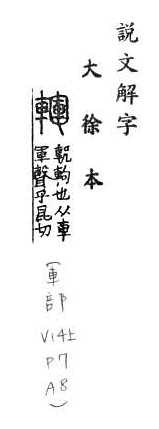 說文解字
大徐本
轒
軏軥也从車
軍聲乎昆切
(車部
V14上
P7
A8)